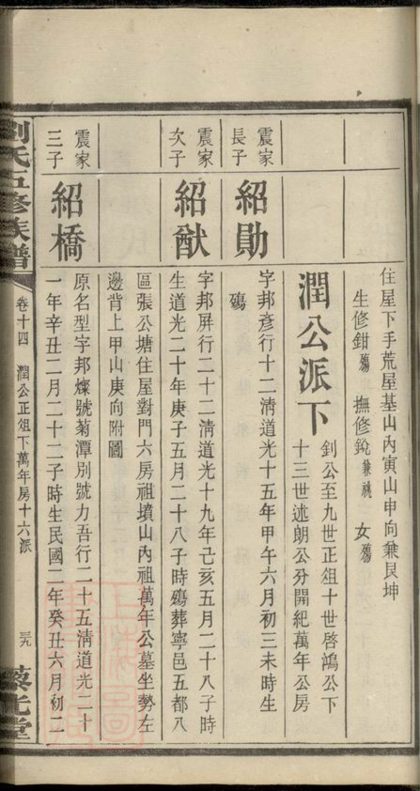 住屋下手荒屋基山內寅山申向兼艮坤
生修鉗殤 撫修銳兼祧 女殤
潤公派下
釗公至九世正俎十世啓鴻公下
十三世述朗公分開紀萬年公房
震家
長子
紹勛
字邦彥行十二清道光十五年甲午六月初三未時生
殤
震家
次子
紹猷
字邦屏行二十二清道光十九年己亥五月二十八子時
生道光二十年庚子五月二十八子時殤葬寧邑五都八
區張公塘住屋對門六房祖墳山內祖萬年公墓坐勢左
邊背上甲山庚向附圖
震家
三子
紹橋
原名型字邦燦號菊潭別號力吾行二十五清道光二十
一年辛丑二月二十二子時生民國二年癸丑六月初二
劉氏五修族譜
卷十四 潤公正俎下萬年房十六派
三九
藜光堂